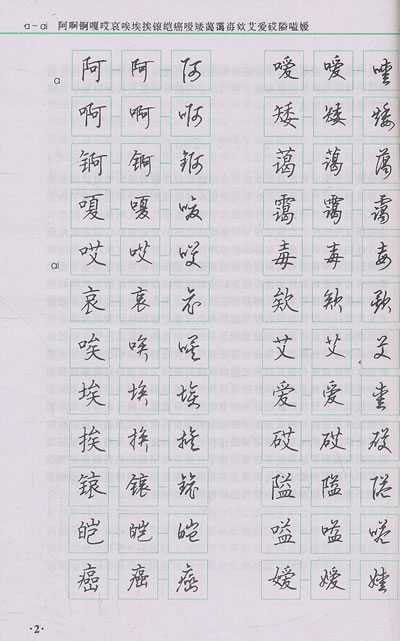 a－ai 阿啊锕嗄哎哀唉埃挨锿皑癌嗳矮蔼霭毐欸艾爱砹隘嗌嫒
a 阿 阿 阿
啊 啊 啊
锕 锕 锕
嗄 嗄 嗄
ai 哎 哎 哎
哀 哀 哀
唉 唉 唉
埃 埃 埃
挨 挨 挨
锿 锿 锿
皑 皑 皑
癌 癌 癌
嗳 嗳 嗳
矮 矮 矮
蔼 蔼 蔼
霭 霭 霭
毐 毐 毐
欸 欸 欸
艾 艾 艾
爱 爱 爱
砹 砹 砹
隘 隘 隘
嗌 嗌 嗌
嫒 嫒 嫒
·2·